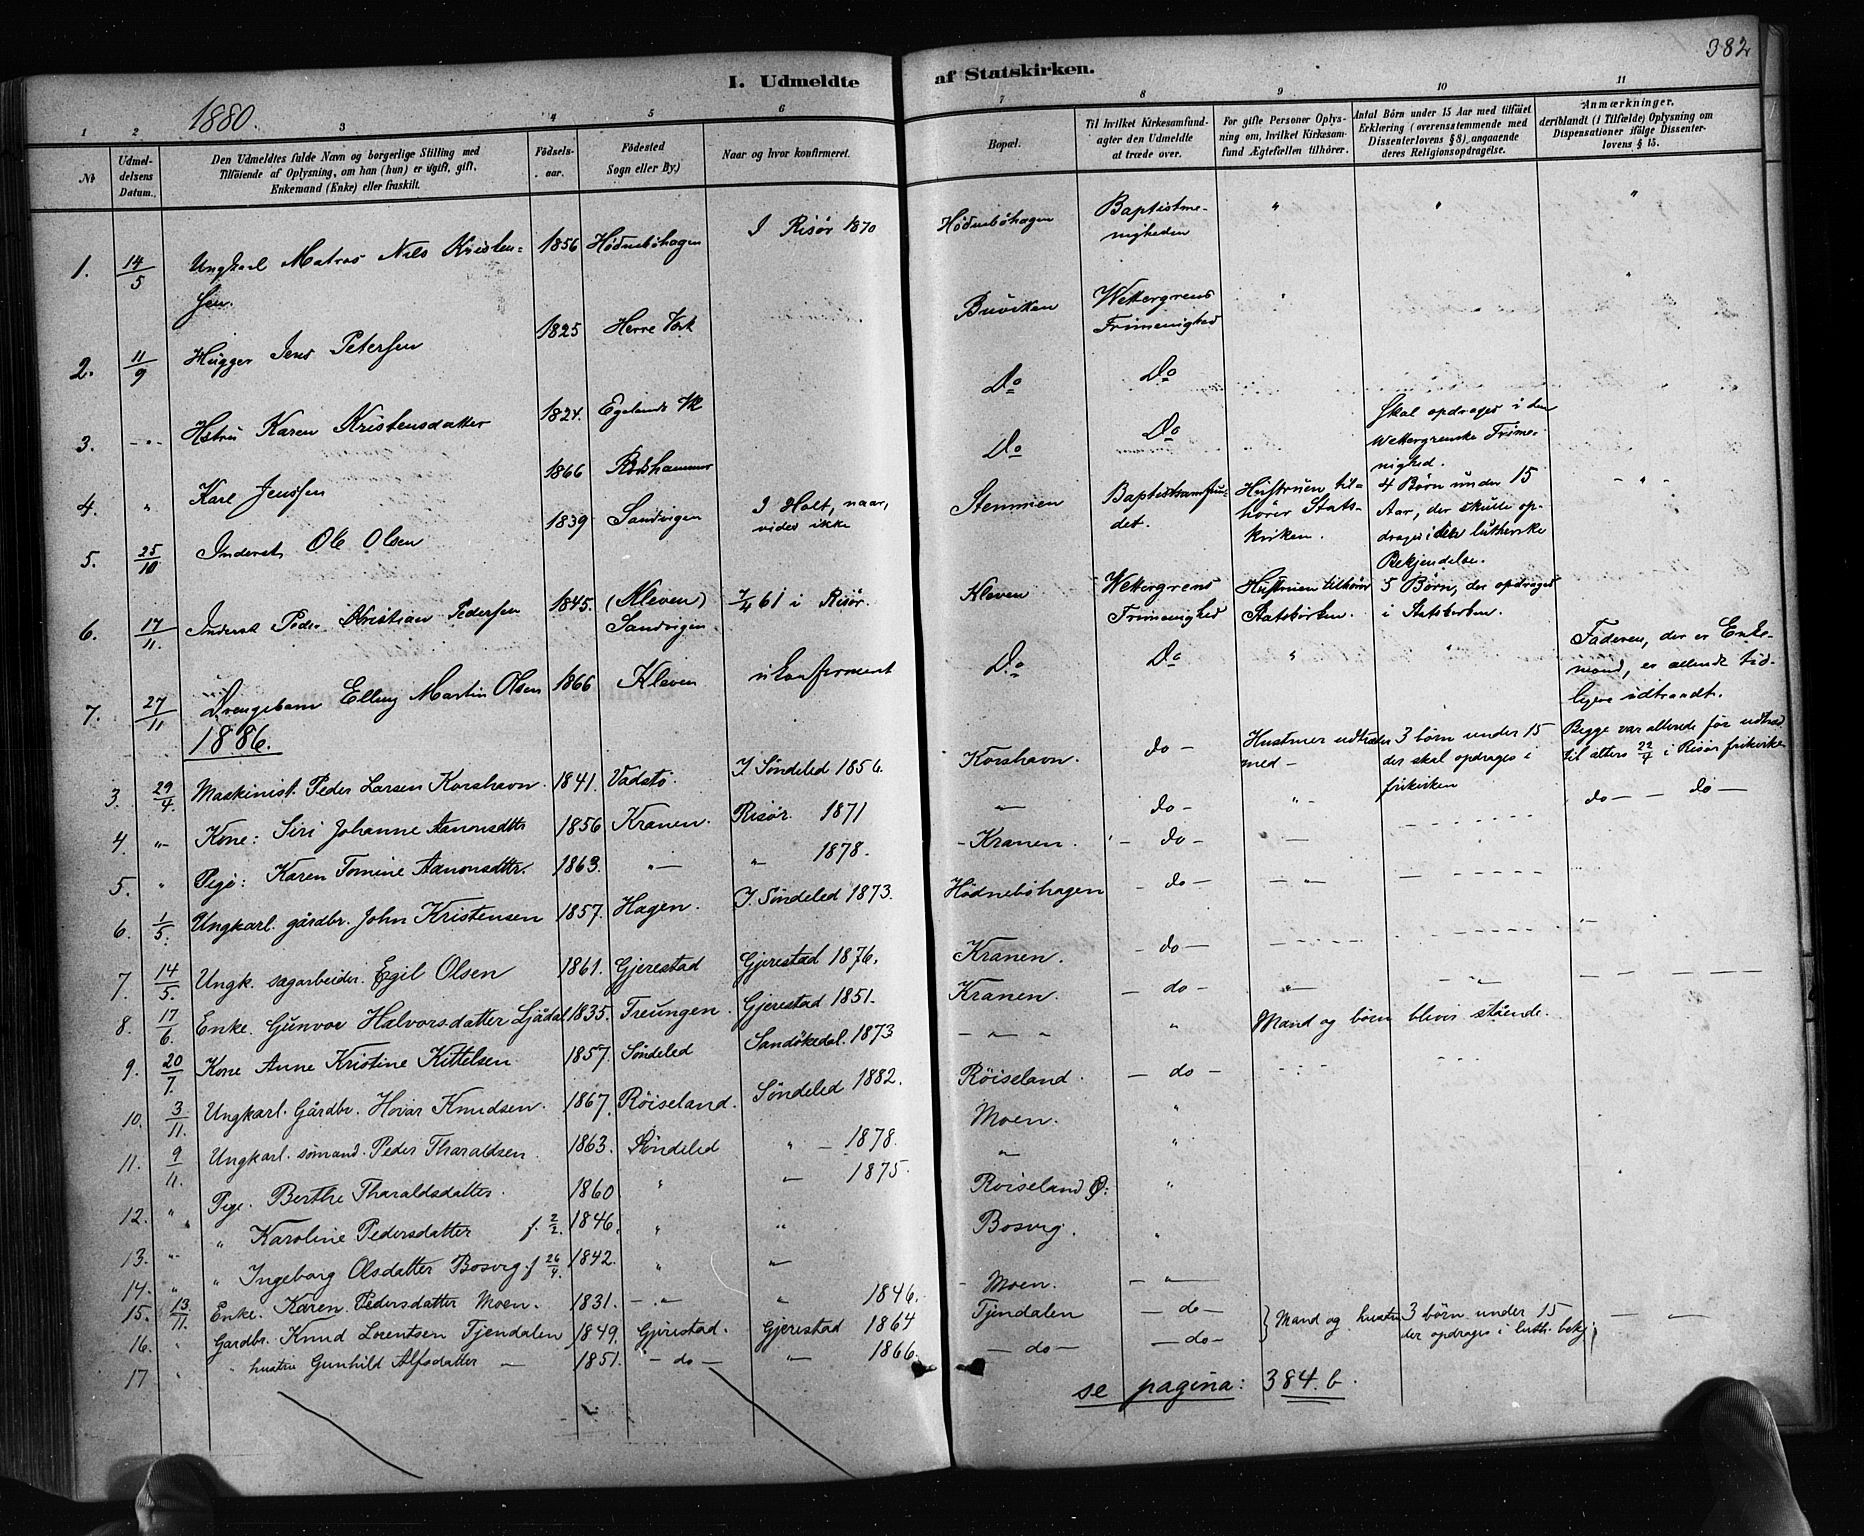 382
I. Udmeldte af Statskirken.
1880.
1 2 3 4 5 6 7 8 9 10 11
No
Udmeldelsens Datum.
Den Udmeldtes fulde Navn og borgerlige Stilling med Tilføiende af Oplysning, om han (hun) er ugift, gift, Enkemand (Enke) eller fraskilt.
Fødselsaar.
Fødested Sogn eller By.)
Naar og hvor konfirmeret.
Bopæl.
Til hvilket Kirkesamfund agter den Udmeldte at træde over.
For gifte Personer Oplysning om, hvilket Kirkesamfund Ægtefællen tilhører.
Antal Børn under 15 Aar med tilføiet Erklæring (overensstemmende med Dissenterlovens § 8) angaaende deres Religionsopdragelse.
Anmærkninger, deriblandt (i Tilfælde) Oplysning om Dispensationer ifølge Dissenterlovens § 15.
1. 14/5 Ungkarl Matros Nils Kristensen. 1856 Hødnebøhagen I Risør 1870 Hødnebøhagen Baptistmenigheden " " "
2. 11/9 Hugger Jens Petersen 1825 Herre Værk Buviken Wettergrens Frimenighed " "
3. -"- Hstru Karen Kristensdatter 1824. Egelands Vk Do Do
4. " Karl Jensen 1866 Rødshammer Do Do Skal opdrages i den Wettergrenske Frimenighed.
5. 25/10 Inderst Ole Olsen 1839 Sandvigen I Holt, naar, vides ikke Stemmen Baptistsamfundet. Hustruen tilhører Statskirken. 4 Børn under 15 Aar, der skulle opdrages i den lutherske Bekjendelse. - " -
6. 17/11. Inderst Peder Kristian Pedersen 1845. (Kleven) Sandvigen. 7/4 61 i Risør. Kleven Wettergrens Frimenighed Hustruen tilhører Statskirken. 5 Børn, der opdrages i Statskirken.
7. 27/11 Drengebarn Elling Martin Olsen 1866 Kleven ukonfirmeret Do Do " " Faderen, der er Enkemand, er allerede tidligere udtraadt.
1886.
3. 29/4. Maskinist. Peder Larsen Korshavn. 1841. Vadstø. I Søndeled 1856. Korshavn. do - Hustruer udtræder med - 3 børn under 15 der skal opdrages i frikirken Begge var allerede før udtræd til alters 22/4 i Risør frikirke
4. -"- Kone: Siri Johanne Aanonsdtter 1856 Kranen. Risør. 1871 -"- do - " - do - - do -
5. " Pige: Karen Tomine Aanonsdtter. 1863. -"- " 1878. - Kranen. - do -
6. 1/5. Ungkarl. gårdbr. John Kristensen 1857. Hagen. I Søndeled 1873. Hødnebøhagen - do - - " -
7. 14/5. Ungk. sagarbeider. Egil Olsen 1861. Gjerestad Gjerestad 1876. Kranen. - do -
8. 17/6. Enke. Gunvor Halvorsdatter Ljådal 1835. Treungen. Gjerestad 1851. Kranen. - do - -"- - " -
9. 20/7 Kone Anne Kristine Kittelsen 1857. Søndeled Sandøkedal. 1873 - " - " " Mand og børn bliver stående.
10. 3/11. Ungkarl. Gårdbr. Hovar Knudsen. 1867. Røiseland. Søndeled 1882. Røiseland. - do -
11. 9/11. Ungkarl. sømand. Peder Tharaldsen. 1863. Søndeled " - 1878. Moen. "
12. " Pige. Berthe Tharaldsdatter. 1860 " " 1875. -"- "
13. -"- " Karoline Pedersdatter f. 2/2. 1846. " " Røiseland Ø: "
14. " " Ingeborg Olsdatter Bosvig. f 26/4. 1842. " " Bosvig. "
15. 13/11. Enke. Karen Pedersdatter Moen. 1831. - " - " 1846. - Moen. - " -
16. " Gardbr. Knud Lorentsen Tjendalen 1849. Gjerestad. Gjerestad 1864 Tjendalen - do - } Mand og hustru 3 børn under 15 der opdrages i luth. bekj. - -
17 " " hustru Gunhild Alfsdatter - 1851. - do - " 1866. - do - - do -
se pagina: 384.b.